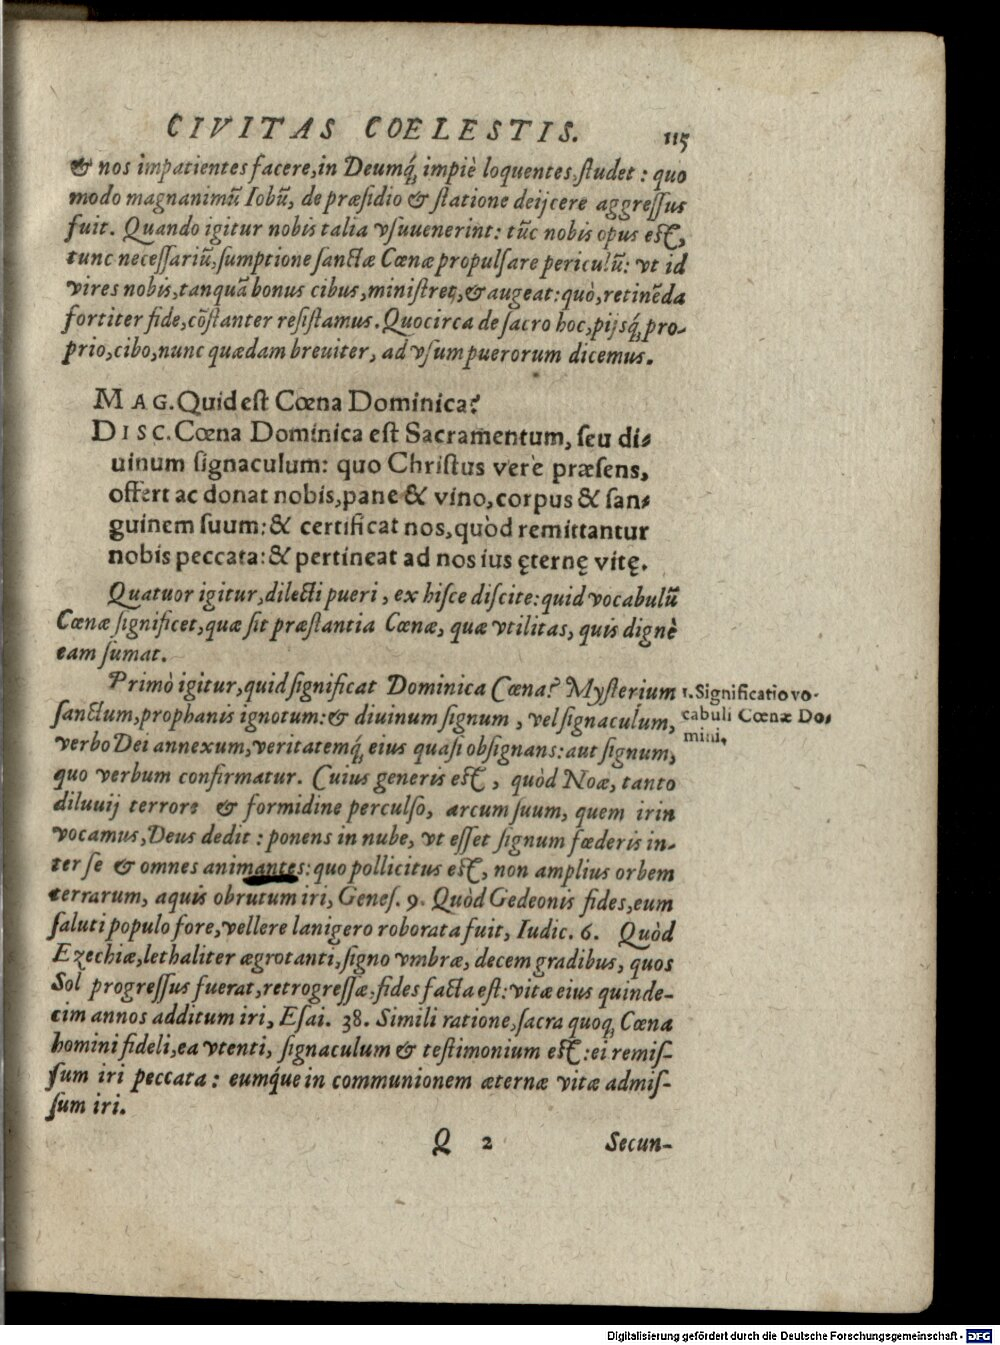 CIVITAS COELESTIS. 115
& nos impatientes facere, in Deumq́; impiè loquentes, studet: quo
modo magnanimũ Iobũ, de præsidio & statione deijcere aggressus
fuit. Quando igitur nobis talia vsuuenerint: tũc nobis opus est,
tunc necessariũ, sumptione sanctæ Cœnæ propulsare periculũ: vt id
vires nobis, tanquã bonus cibus, ministret, & augeat: quò, retinẽda
fortiter fide, cõstanter resistamus. Quocirca de sacro hoc, pijsq́; pro-
prio, cibo, nunc quædam breuiter, ad vsum puerorum dicemus.
MAG. Quid est Cœna Dominica?
DISC. Cœna Dominica est Sacramentum, seu di-
uinum signaculum: quo Christus verè præsens,
offert ac donat nobis, pane & vino, corpus & san-
guinem suum: & certificat nos, quòd remittantur
nobis peccata: & pertineat ad nos ius ęternę vitę.
Quatuor igitur, dilecti pueri, ex hisce discite: quid vocabulũ
Cœnæ significet, quæ sit præstantia Cœnæ, quæ vtilitas, quis dignè
eam sumat.
Primò igitur, quid significat Dominica Cœna? Mysterium
sanctum, prophanis ignotum: & diuinum signum, vel signaculum,
verbo Dei annexum, veritatemq́; eius quasi obsignans: aut signum,
quo verbum confirmatur. Cuius generis est, quòd Noæ, tanto
diluuij terrore & formidine perculso, arcum suum, quem irin
vocamus, Deus dedit: ponens in nube, vt esset signum fœderis in-
ter se & omnes animantes: quo pollicitus est, non amplius orbem
terrarum, aquis obrutum iri, Genes. 9. Quòd Gedeonis fides, eum
saluti populo fore, vellere lanigero roborata fuit, Iudic. 6. Quòd
Ezechiæ, lethaliter ægrotanti, signo vmbræ, decem gradibus, quos
Sol progressus fuerat, retrogressæ, fides facta est: vitæ eius quinde-
cim annos additum iri, Esai. 38. Simili ratione, sacra quoq; Cœna
homini fideli, ea vtenti, signaculum & testimonium est: ei remis-
sum iri peccata: eumq́ue in communionem æternæ vitæ admis-
sum iri.
1. Significatio vo-
cabuli Cœnæ Do-
mini,
Q 2 Secun-
Digitalisierung gefördert durch die Deutsche Forschungsgemeinschaft - DFG